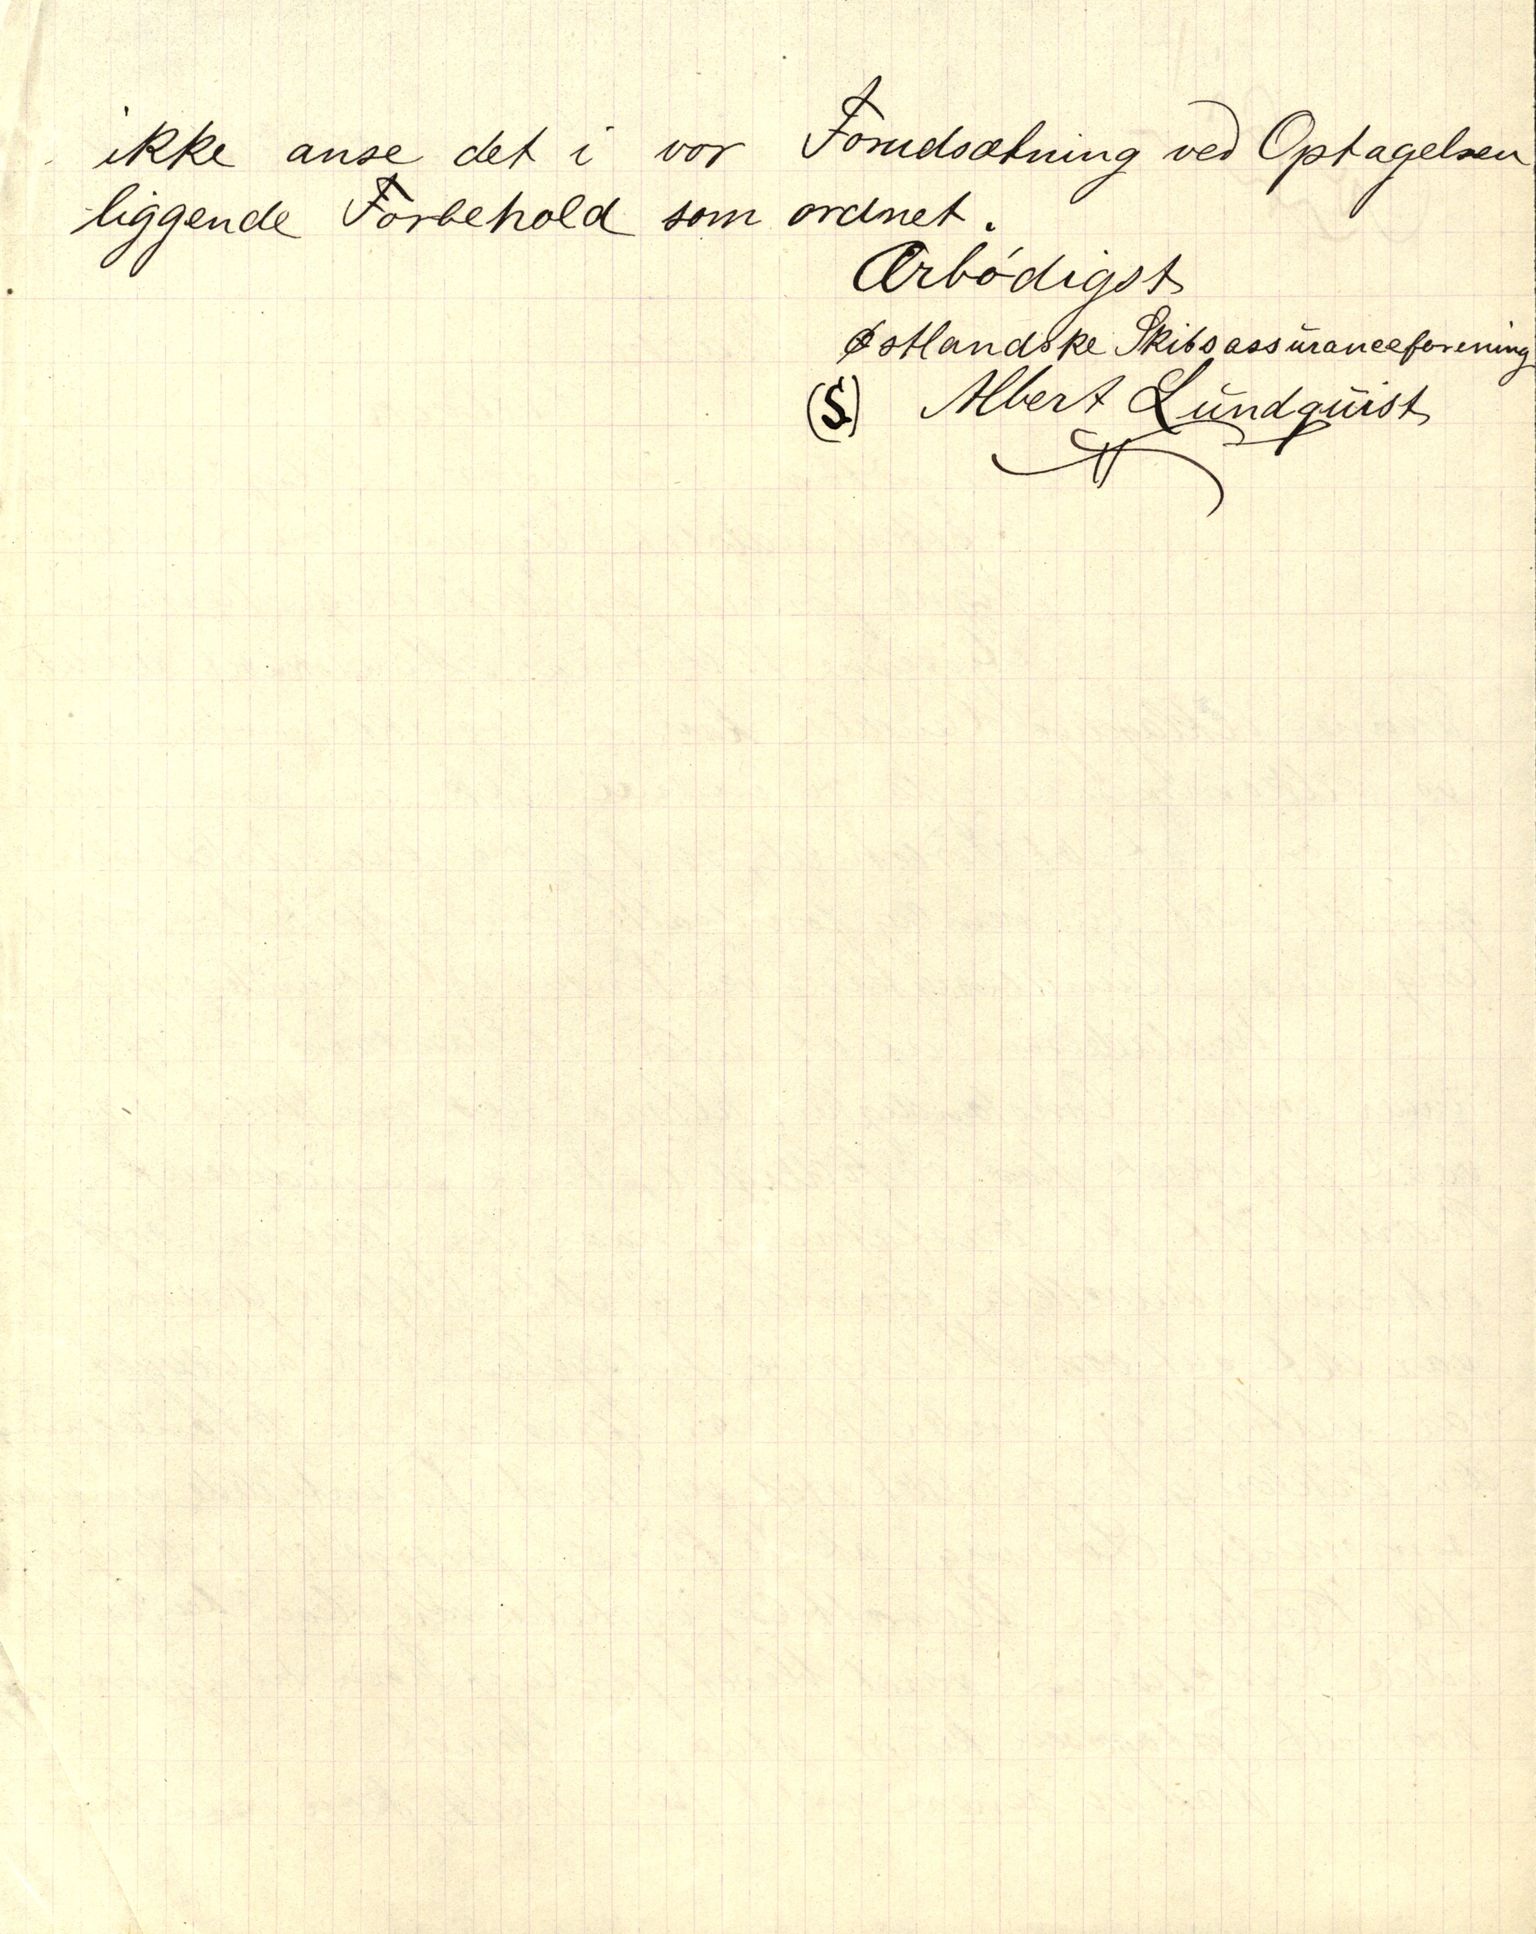 ikke anse det i vor Forudsætning ved Optagelsen
liggende Forbehold som ordnet.
Ærbödigst
Østlandske Skibsassüranceforening
(S) Albert Lündqüist